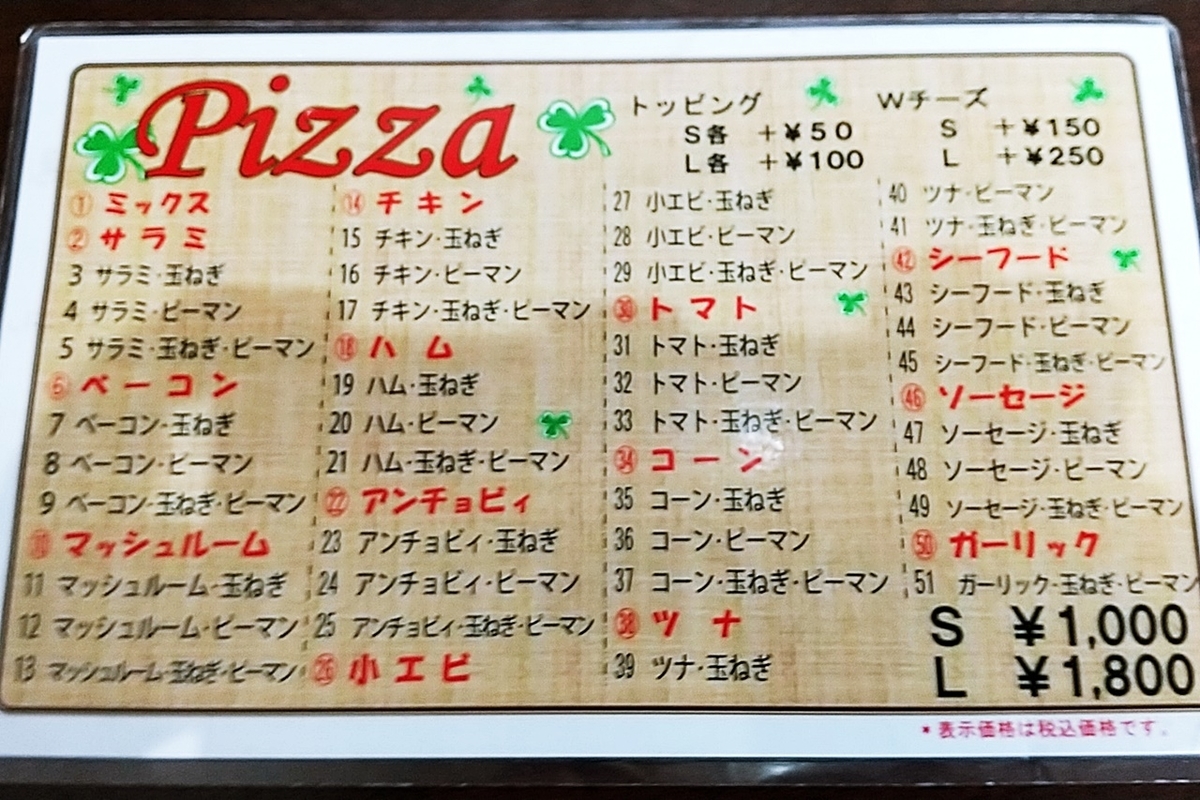 Pizza
トッピング
S各 +¥50
L各 +¥100
Wチーズ
S +¥150
L +¥250
① ミックス
② サラミ
3 サラミ·玉ねぎ
4 サラミ·ピーマン
5 サラミ·玉ねぎ·ピーマン
⑥ ベーコン
7 ベーコン·玉ねぎ
8 ベーコン·ピーマン
9 ベーコン·玉ねぎ·ピーマン
⑩ マッシュルーム
11 マッシュルーム·玉ねぎ
12 マッシュルーム·ピーマン
13 マッシュルーム·玉ねぎ·ピーマン
⑭ チキン
15 チキン·玉ねぎ
16 チキン·ピーマン
17 チキン·玉ねぎ·ピーマン
⑱ ハム
19 ハム·玉ねぎ
20 ハム·ピーマン
21 ハム·玉ねぎ·ピーマン
㉒ アンチョビィ
23 アンチョビィ·玉ねぎ
24 アンチョビィ·ピーマン
25 アンチョビィ·玉ねぎ·ピーマン
㉖ 小エビ
27 小エビ·玉ねぎ
28 小エビ·ピーマン
29 小エビ·玉ねぎ·ピーマン
㉚ トマト
31 トマト·玉ねぎ
32 トマト·ピーマン
33 トマト·玉ねぎ·ピーマン
㉞ コーン
35 コーン·玉ねぎ
36 コーン·ピーマン
37 コーン·玉ねぎ·ピーマン
㊳ ツナ
39 ツナ·玉ねぎ
40 ツナ·ピーマン
41 ツナ·玉ねぎ·ピーマン
㊷ シーフード
43 シーフード·玉ねぎ
44 シーフード·ピーマン
45 シーフード·玉ねぎ·ピーマン
㊻ ソーセージ
47 ソーセージ·玉ねぎ
48 ソーセージ·ピーマン
49 ソーセージ·玉ねぎ·ピーマン
㊿ ガーリック
51 ガーリック·玉ねぎ·ピーマン
S ¥1,000
L ¥1,800
*表示価格は税込価格です。